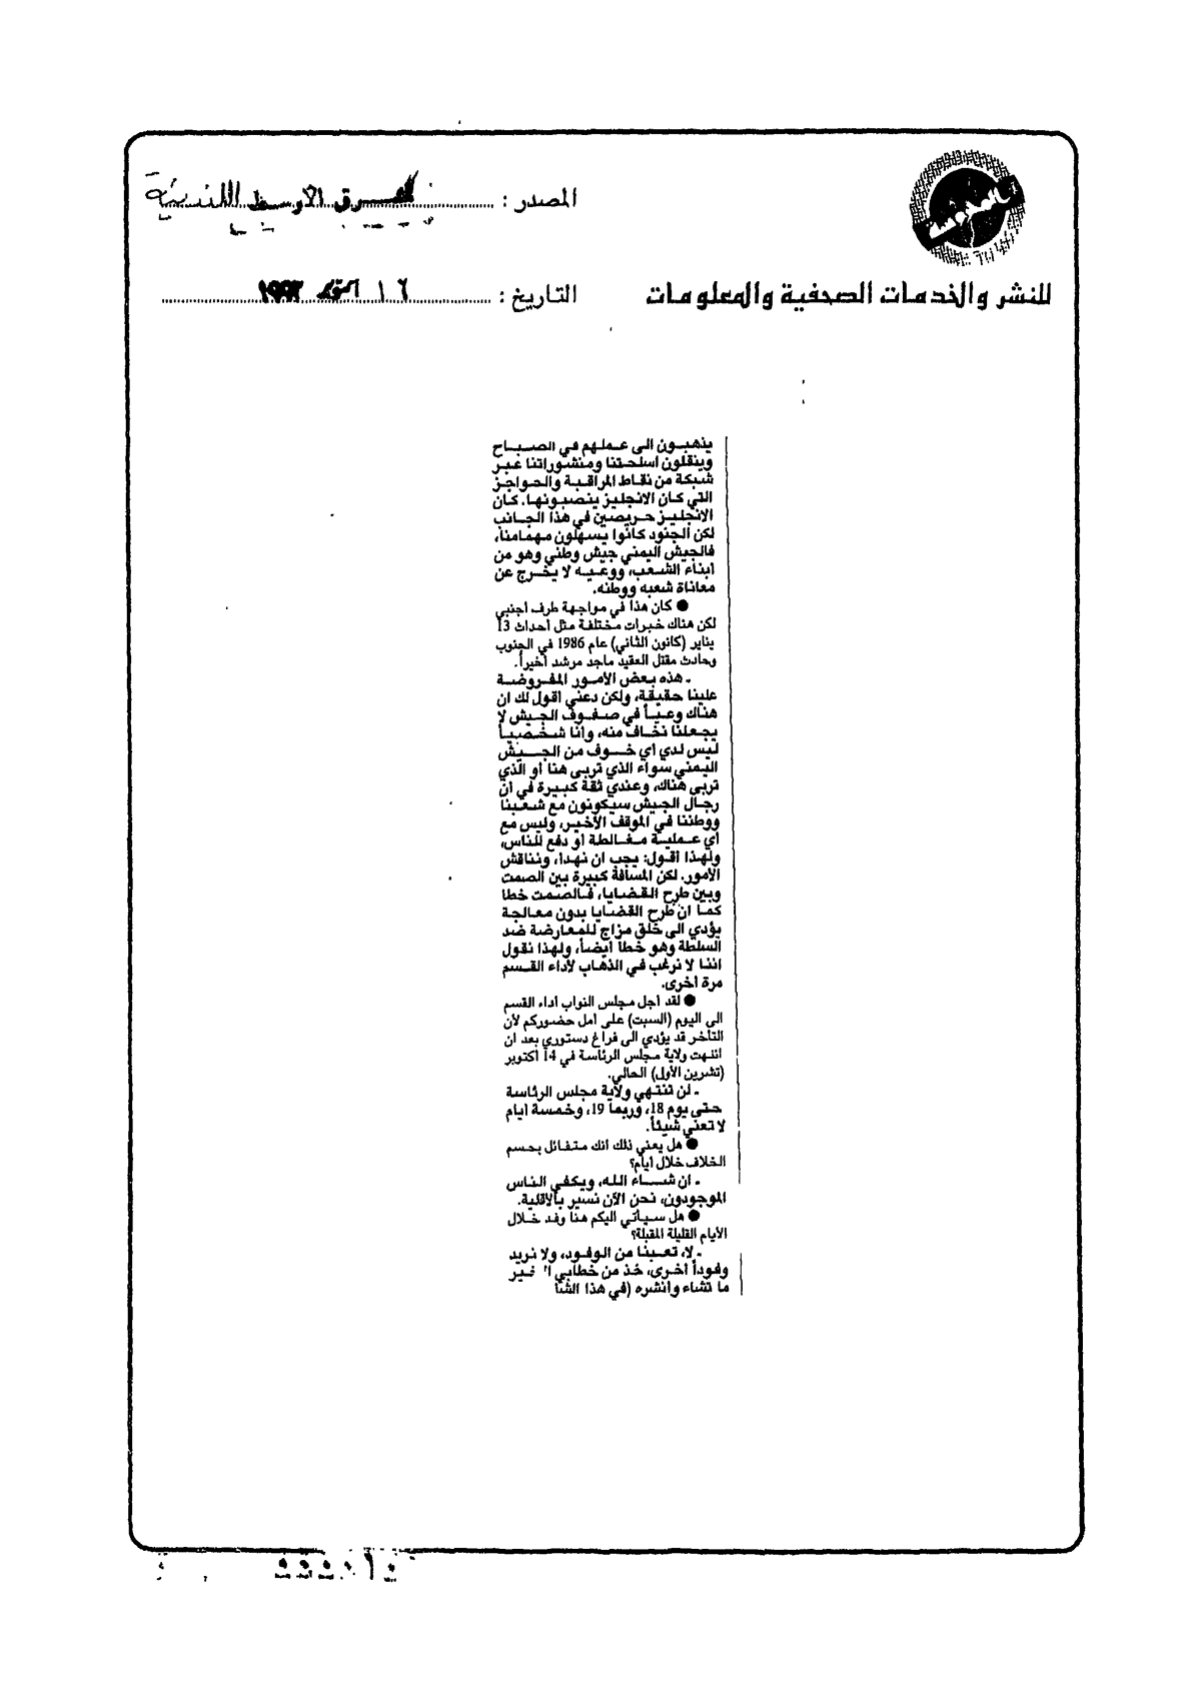 المصدر : الشرق الأوسط اللندنية
للنشر والخدمات الصحفية والمعلومات
التاريخ : ١٦ أكتوبر ١٩٩٣
يذهبون الى عملهم في الصباح
وينقلون اسلحتنا ومنشوراتنا عبر
شبكة من نقاط المراقبة والحواجز
التي كان الانجليز ينصبونها. كان
الانجليز حريصين في هذا الجانب
لكن الجنود كانوا يسهلون مهمامنا،
فالجيش اليمني جيش وطني وهو من
ابناء الشعب، ووعيه لا يخرج عن
معاناة شعبه ووطنه.
● كان هذا في مواجهة طرف اجنبي
لكن هناك خبرات مختلفة مثل احداث 13
يناير (كانون الثاني) عام 1986 في الجنوب
وحادث مقتل العقيد ماجد مرشد أخيراً.
ـ هذه بعض الأمور المفروضة
علينا حقيقة، ولكن دعني اقول لك ان
هناك وعياً في صفوف الجيش لا
يجعلنا نخاف منه، وأنا شخصياً
ليس لدي أي خوف من الجيش
اليمني سواء الذي تربى هنا او الذي
تربى هناك، وعندي ثقة كبيرة في أن
رجال الجيش سيكونون مع شعبنا
ووطننا في الموقف الأخير، وليس مع
أي عملية مغالطة أو دفع للناس،
ولهذا اقول: يجب ان نهدأ، ونناقش
الأمور. لكن المسافة كبيرة بين الصمت
وبين طرح القضايا، فالصمت خطا
كما ان طرح القضايا بدون معالجة
يؤدي الى خلق مزاج للمعارضة ضد
السلطة وهو خطأ أيضاً، ولهذا نقول
اننا لا نرغب في الذهاب لأداء القسم
مرة أخرى.
● لقد أجل مجلس النواب أداء القسم
الى اليوم (السبت) على امل حضوركم لأن
التأخر قد يؤدي الى فراغ دستوري بعد ان
انتهت ولاية مجلس الرئاسة في 14 أكتوبر
(تشرين الأول) الحالي.
ـ لن تنتهي ولاية مجلس الرئاسة
حتى يوم 18، وربما 19، وخمسة ايام
لا تعني شيئاً.
● هل يعني ذلك انك متفائل بحسم
الخلاف خلال أيام؟
ـ ان شاء الله، ويكفي الناس
الموجودون، نحن الآن نسير بالأقلية.
● هل سيأتي اليكم هنا وفد خلال
الأيام القليلة المقبلة؟
ـ لا، تعبنا من الوفود، ولا نريد
وفوداً أخرى، خذ من خطابي
ما تشاء وانشره (في هذا الشأ